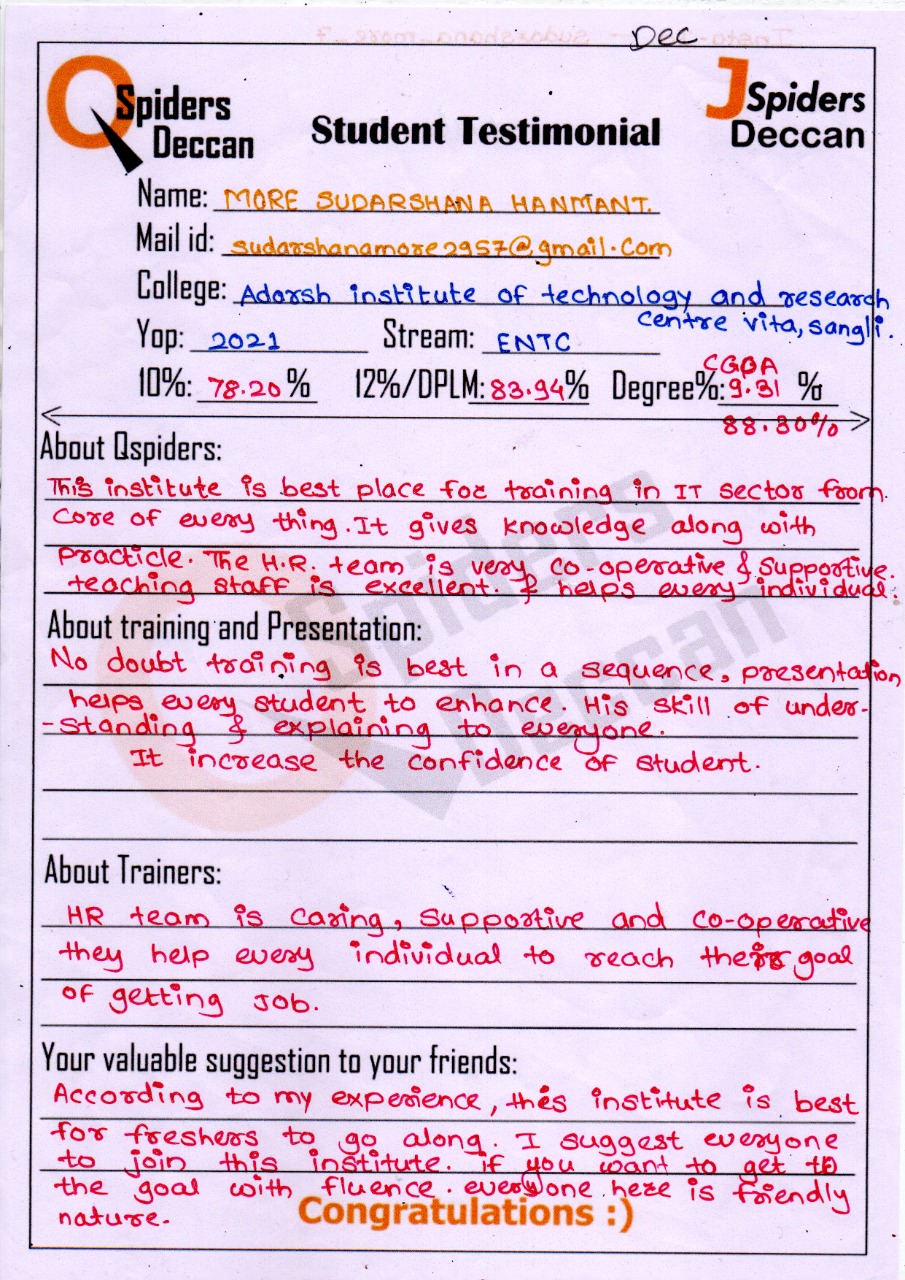 Dec
QSpiders Deccan
Student Testimonial
JSpiders Deccan
Name: MORE SUDARSHANA HANMANT.
Mail id: sudarshanamore2957@gmail.Com
College: Adarsh institute of technology and research
centre vita, sangli.
Yop: 2021 Stream: ENTC
CGPA
10%: 78.20% 12%/DPLM: 83.94% Degree%: 9.31 %
88.30%
About Qspiders:
This institute is best place for training in IT sector from
core of every thing. It gives knowledge along with
Practicle. The H.R. team is very co-operative & Supportive.
teaching staff is excellent. & helps every individual.
About training and Presentation:
No doubt training is best in a sequence, presentation
helps every student to enhance. His skill of under-
-standing & explaining to everyone.
It increase the confidence of student.
About Trainers:
HR team is caring, supportive and co-operative
they help every individual to reach their goal
of getting Job.
Your valuable suggestion to your friends:
According to my experience, this institute is best
for freshers to go along. I suggest everyone
to join this institute. if you want to get to
the goal with fluence. everyone here is friendly
nature.
Congratulations :)
Spiders
Deccan